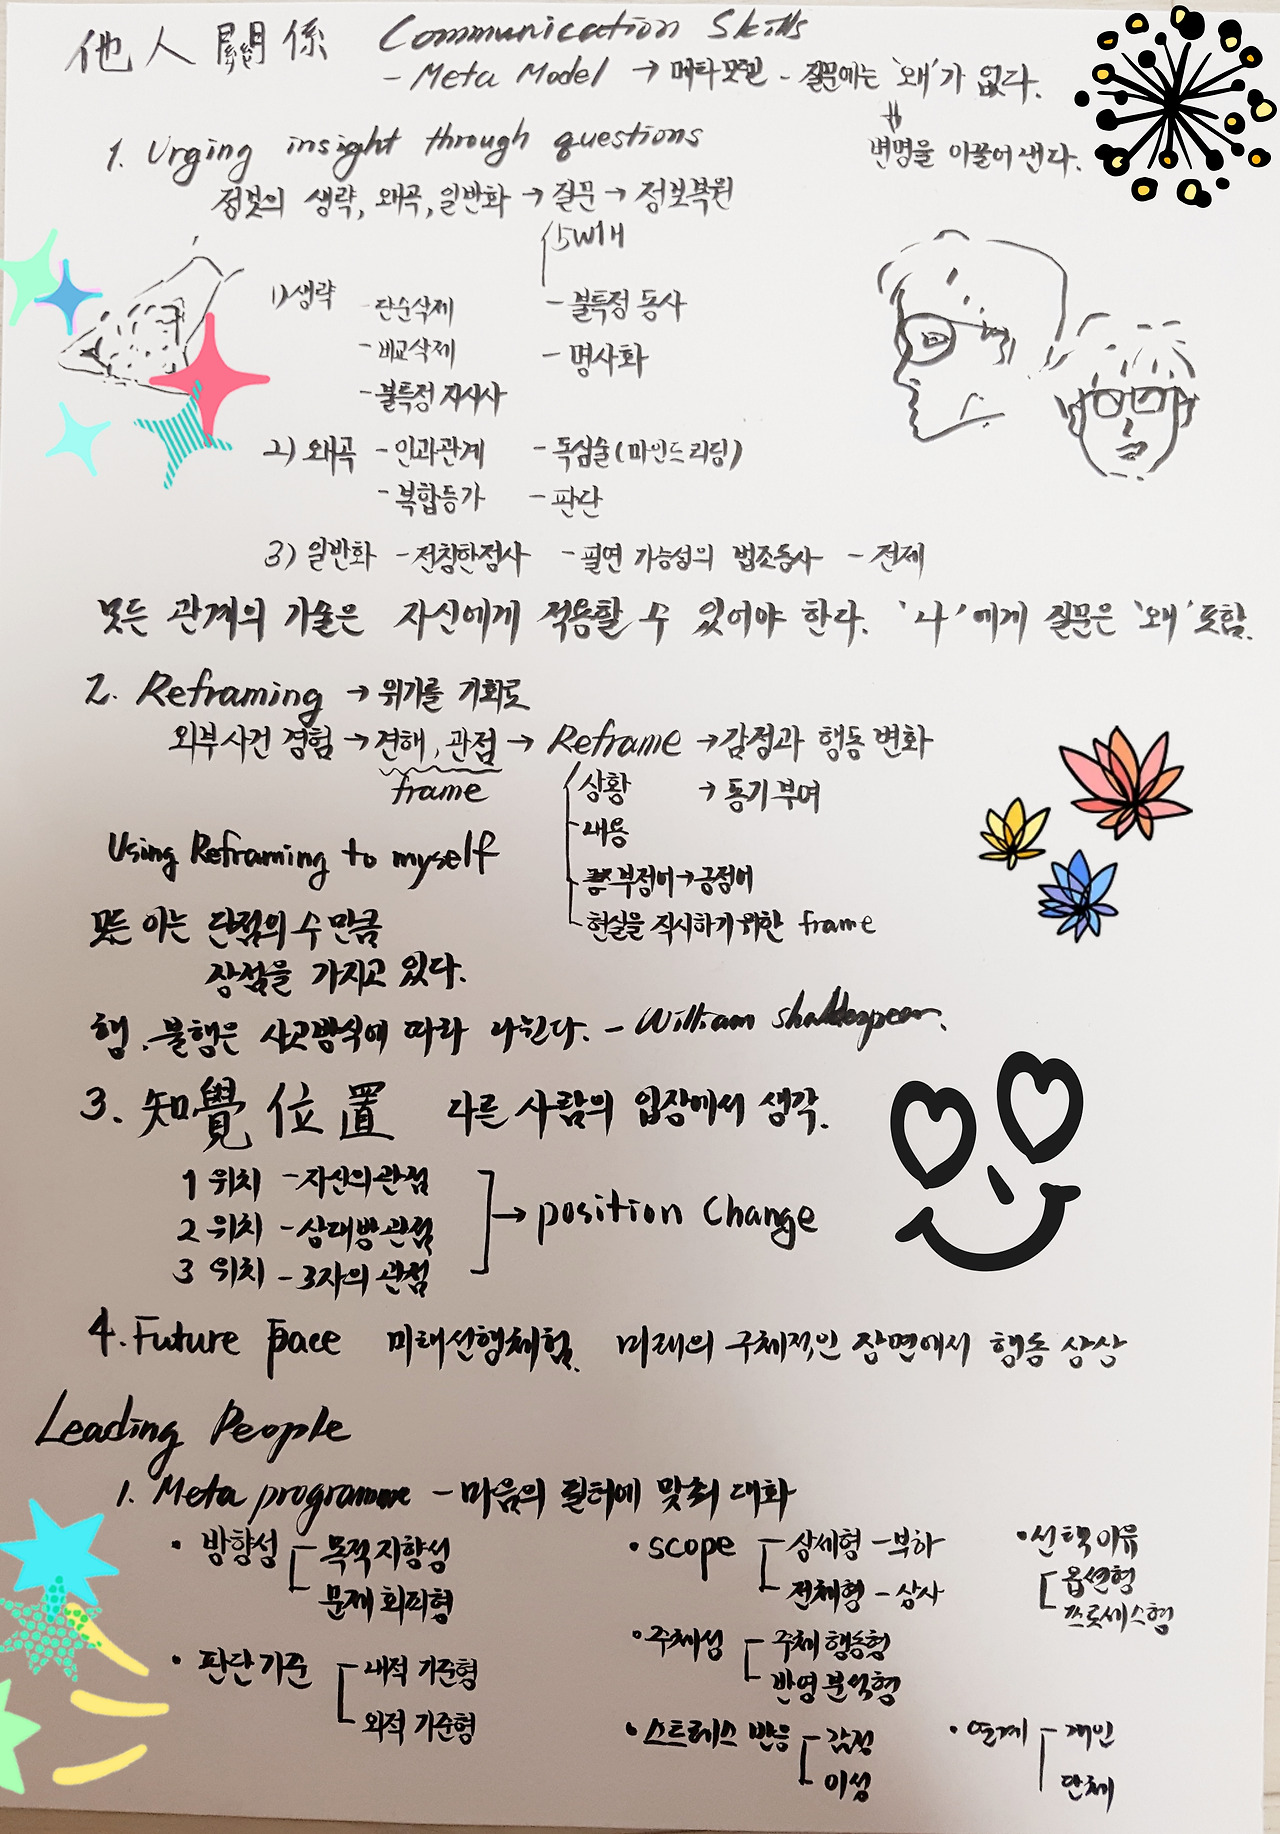 他人關係 Communication Skills
- Meta Model → 메타모델 - 질문에는 '왜'가 없다.
변명을 이끌어 낸다.
1. Urging insight through questions
정보의 생략, 왜곡, 일반화 → 질문 → 정보복원
5W1H
1) 생략 - 단순삭제 - 불특정 동사
- 비교삭제 - 명사화
- 불특정 지시사
2) 왜곡 - 인과관계 - 독심술(마인드 리딩)
- 복합등가 - 판단
3) 일반화 - 전칭한정사 - 필연 가능성의 법조동사 - 전제
모든 관계의 기술은 자신에게 적용할 수 있어야 한다. '나'에게 질문은 '왜' 포함.
2. Reframing → 위기를 기회로
외부사건 경험 → 견해, 관점 → Reframe → 감정과 행동 변화
frame 상황 → 동기부여
내용
Using Reframing to myself
부정어→긍정어
현실을 직시하기 위한 frame
모든 이는 단점의 수 만큼
장점을 가지고 있다.
행, 불행은 사고방식에 따라 나뉜다. - William
3. 知覺位置 다른 사람의 입장에서 생각.
1 위치 - 자신의 관점
2 위치 - 상대방 관점 → position Change
3 위치 - 3자의 관점
4. Future pace 미래선행체험. 미래의 구체적인 장면에서 행동 상상
Leading People
1. Meta programme - 마음의 필터에 맞춰 대화
• 방향성 목적 지향성 • scope 상세형 - 부하 • 선택이유
문제 회피형 전체형 - 상사 옵션형
프로세스형
• 판단기준 내적 기준형 • 주체성 주체 행동형
외적 기준형 반영 분석형
• 스트레스 반응 감정 • 연계 개인
이성 단체